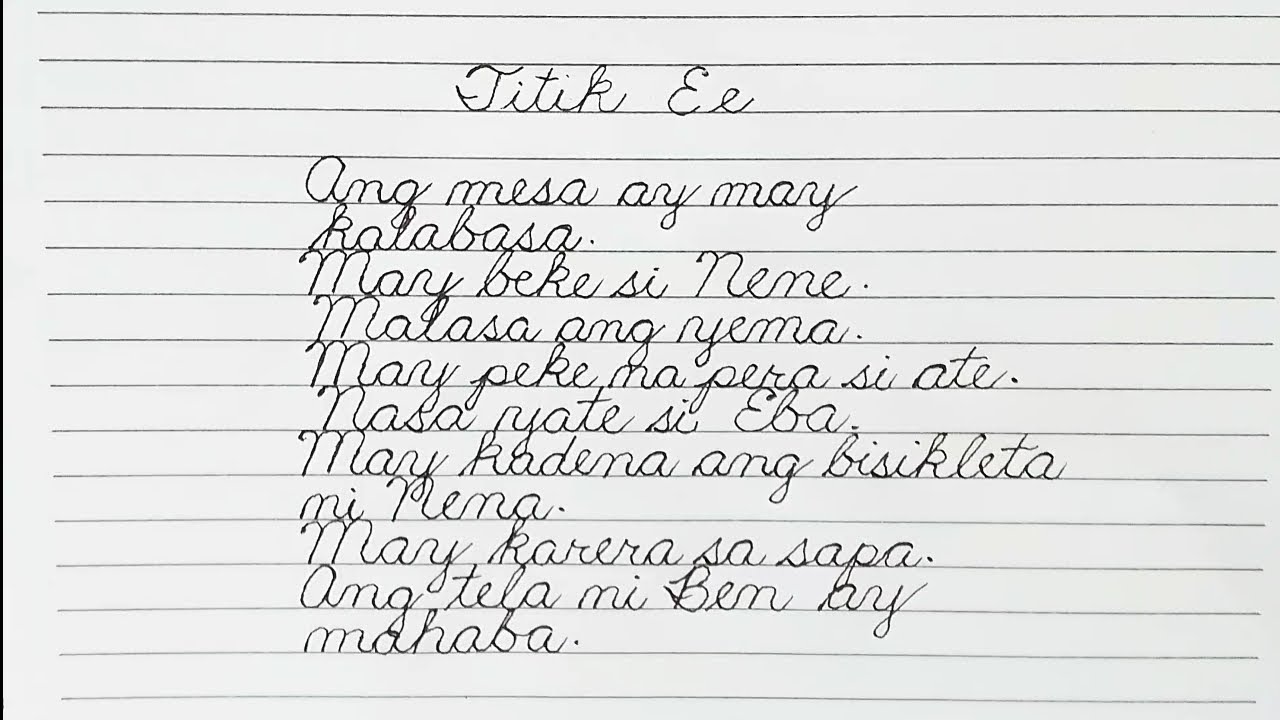 Titik Ee
Ang mesa ay may
kalabasa.
May beke si Nene.
Malasa ang yema.
May peke na pera si ate.
Nasa yate si Eba.
May kadena ang bisikleta
ni Nena.
May karera sa sapa.
Ang tela ni Ben ay
mahaba.